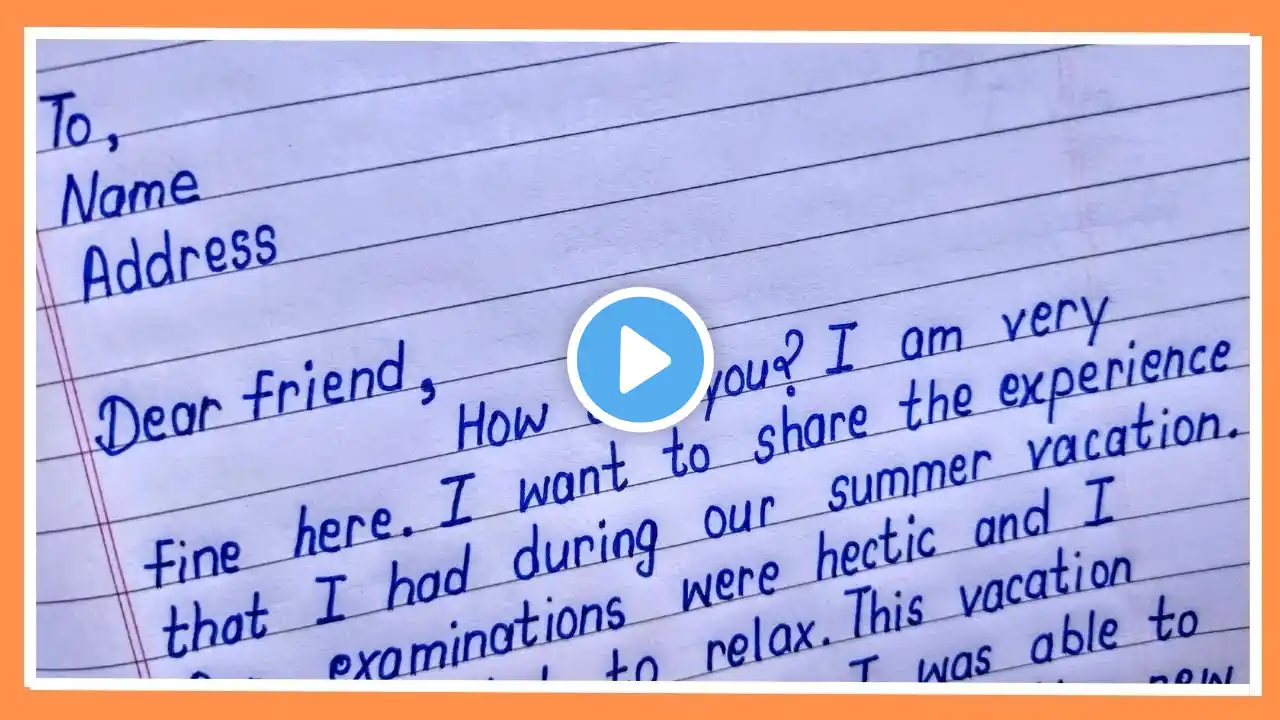 To,
Name
Address
Dear friend,
How you? I am very
fine here. I want to share the experience
that I had during our summer vacation.
examinations were hectic and I
to relax. This vacation
I was able to
new